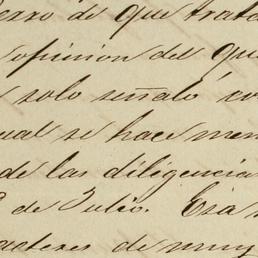 de que trata
opinion del qu
solo señaló co
ual se hace men
de las diligencia
de Julio. Esa
acteres de muy